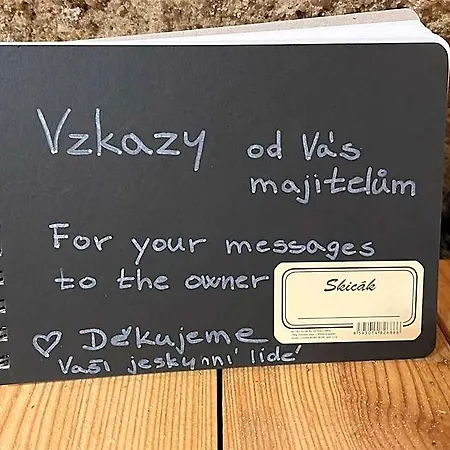 Vzkazy od Vás
majitelům
For your messages
to the owner
Skicák
♡ Děkujeme
Vaši jeskynní lidé